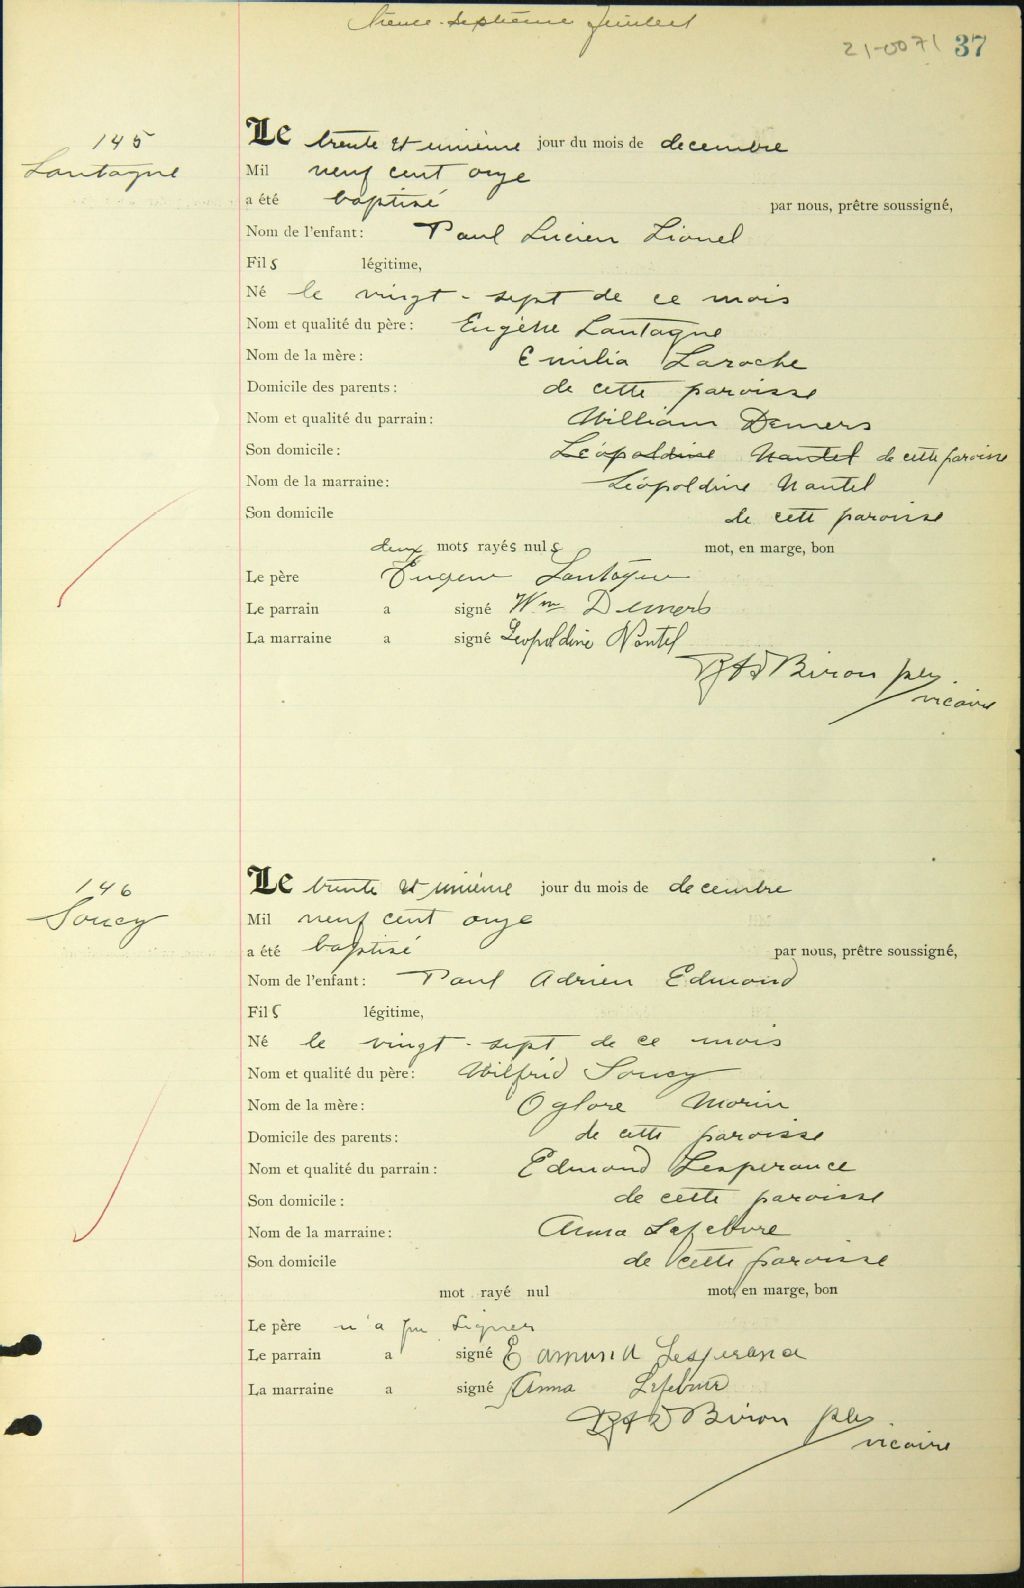 trente-septième feuillet
21-0071 37
145
Lantagne
Le trente et unième jour du mois de decembre
Mil neuf cent onze
a été baptisé par nous, prêtre soussigné,
Nom de l'enfant: Paul Lucien Lionel
Fils légitime,
Né le vingt-sept de ce mois
Nom et qualité du père: Eugène Lantagne
Nom de la mère: Emilia Laroche
Domicile des parents: de cette paroisse
Nom et qualité du parrain: William Demers
Son domicile: Léopoldine Nantel de cette paroisse
Nom de la marraine: Léopoldine Nantel
Son domicile de cette paroisse
deux mots rayés nuls mot, en marge, bon
Le père Eugène Lantagne
Le parrain a signé Wm Demers
La marraine a signé Leopoldine Nantel
Biron ptre
vicaire
146
Soucy
Le trente et unième jour du mois de decembre
Mil neuf cent onze
a été baptisé par nous, prêtre soussigné,
Nom de l'enfant: Paul Adrien Edmond
Fils légitime,
Né le vingt-sept de ce mois
Nom et qualité du père: Wilfrid Soucy
Nom de la mère: Oglore Morin
Domicile des parents: de cette paroisse
Nom et qualité du parrain: Edmond Lesperance
Son domicile: de cette paroisse
Nom de la marraine: Anna Lefebvre
Son domicile de cette paroisse
mot rayé nul mot, en marge, bon
Le père n'a pu signer
Le parrain a signé Edmond Lesperance
La marraine a signé Anna Lefebvre
Biron ptre
vicaire